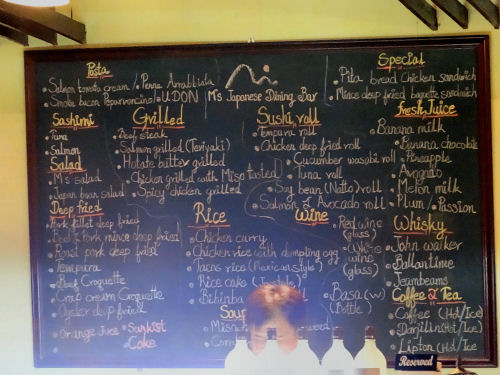 Pasta
Salmon tomato cream / Penne Arrabbiata
Smoke bacon Peparoncino / U.DON
M's Japanese Dining Bar
Special
Pita bread chicken sandwich
Mince deep fried baguette sandwich
Sashimi
Tuna
Salmon
Salad
M's salad
Japan bean salad
Deep fried
Pork fillet deep fried
Beef & Pork mince deep fried
Roast pork deep fried
Tempura
Croquette
Crab cream Croquette
Oyster deep fried
Orange Juice
Sunkist
Coke
Grilled
Beef steak
Salmon grilled (Teriyaki)
Hotate butter grilled
Chicken grilled with Miso tasted
Spicy chicken grilled
Sushi roll
Tempura roll
Chicken deep fried roll
Cucumber wasabi roll
Tuna roll
Soy bean (Natto) roll
Salmon & Avocado roll
Rice
Chicken curry
Chicken rice with dumpling egg
Tacos rice (Mexican style)
Rice cake
Bibinba
Soup
Wine
Red wine
(glass)
White
wine
(glass)
Basa (w)
(Bottle)
Fresh Juice
Banana milk
Banana chocolate
Pineapple
Avogato
Melon milk
Plum / Passion
Whisky
John walker
Ballantime
Jeambeams
Coffee & Tea
Coffee (Hot/Ice)
Darjilin (Hot/Ice)
Lipton (Hot/Ice
Reserved